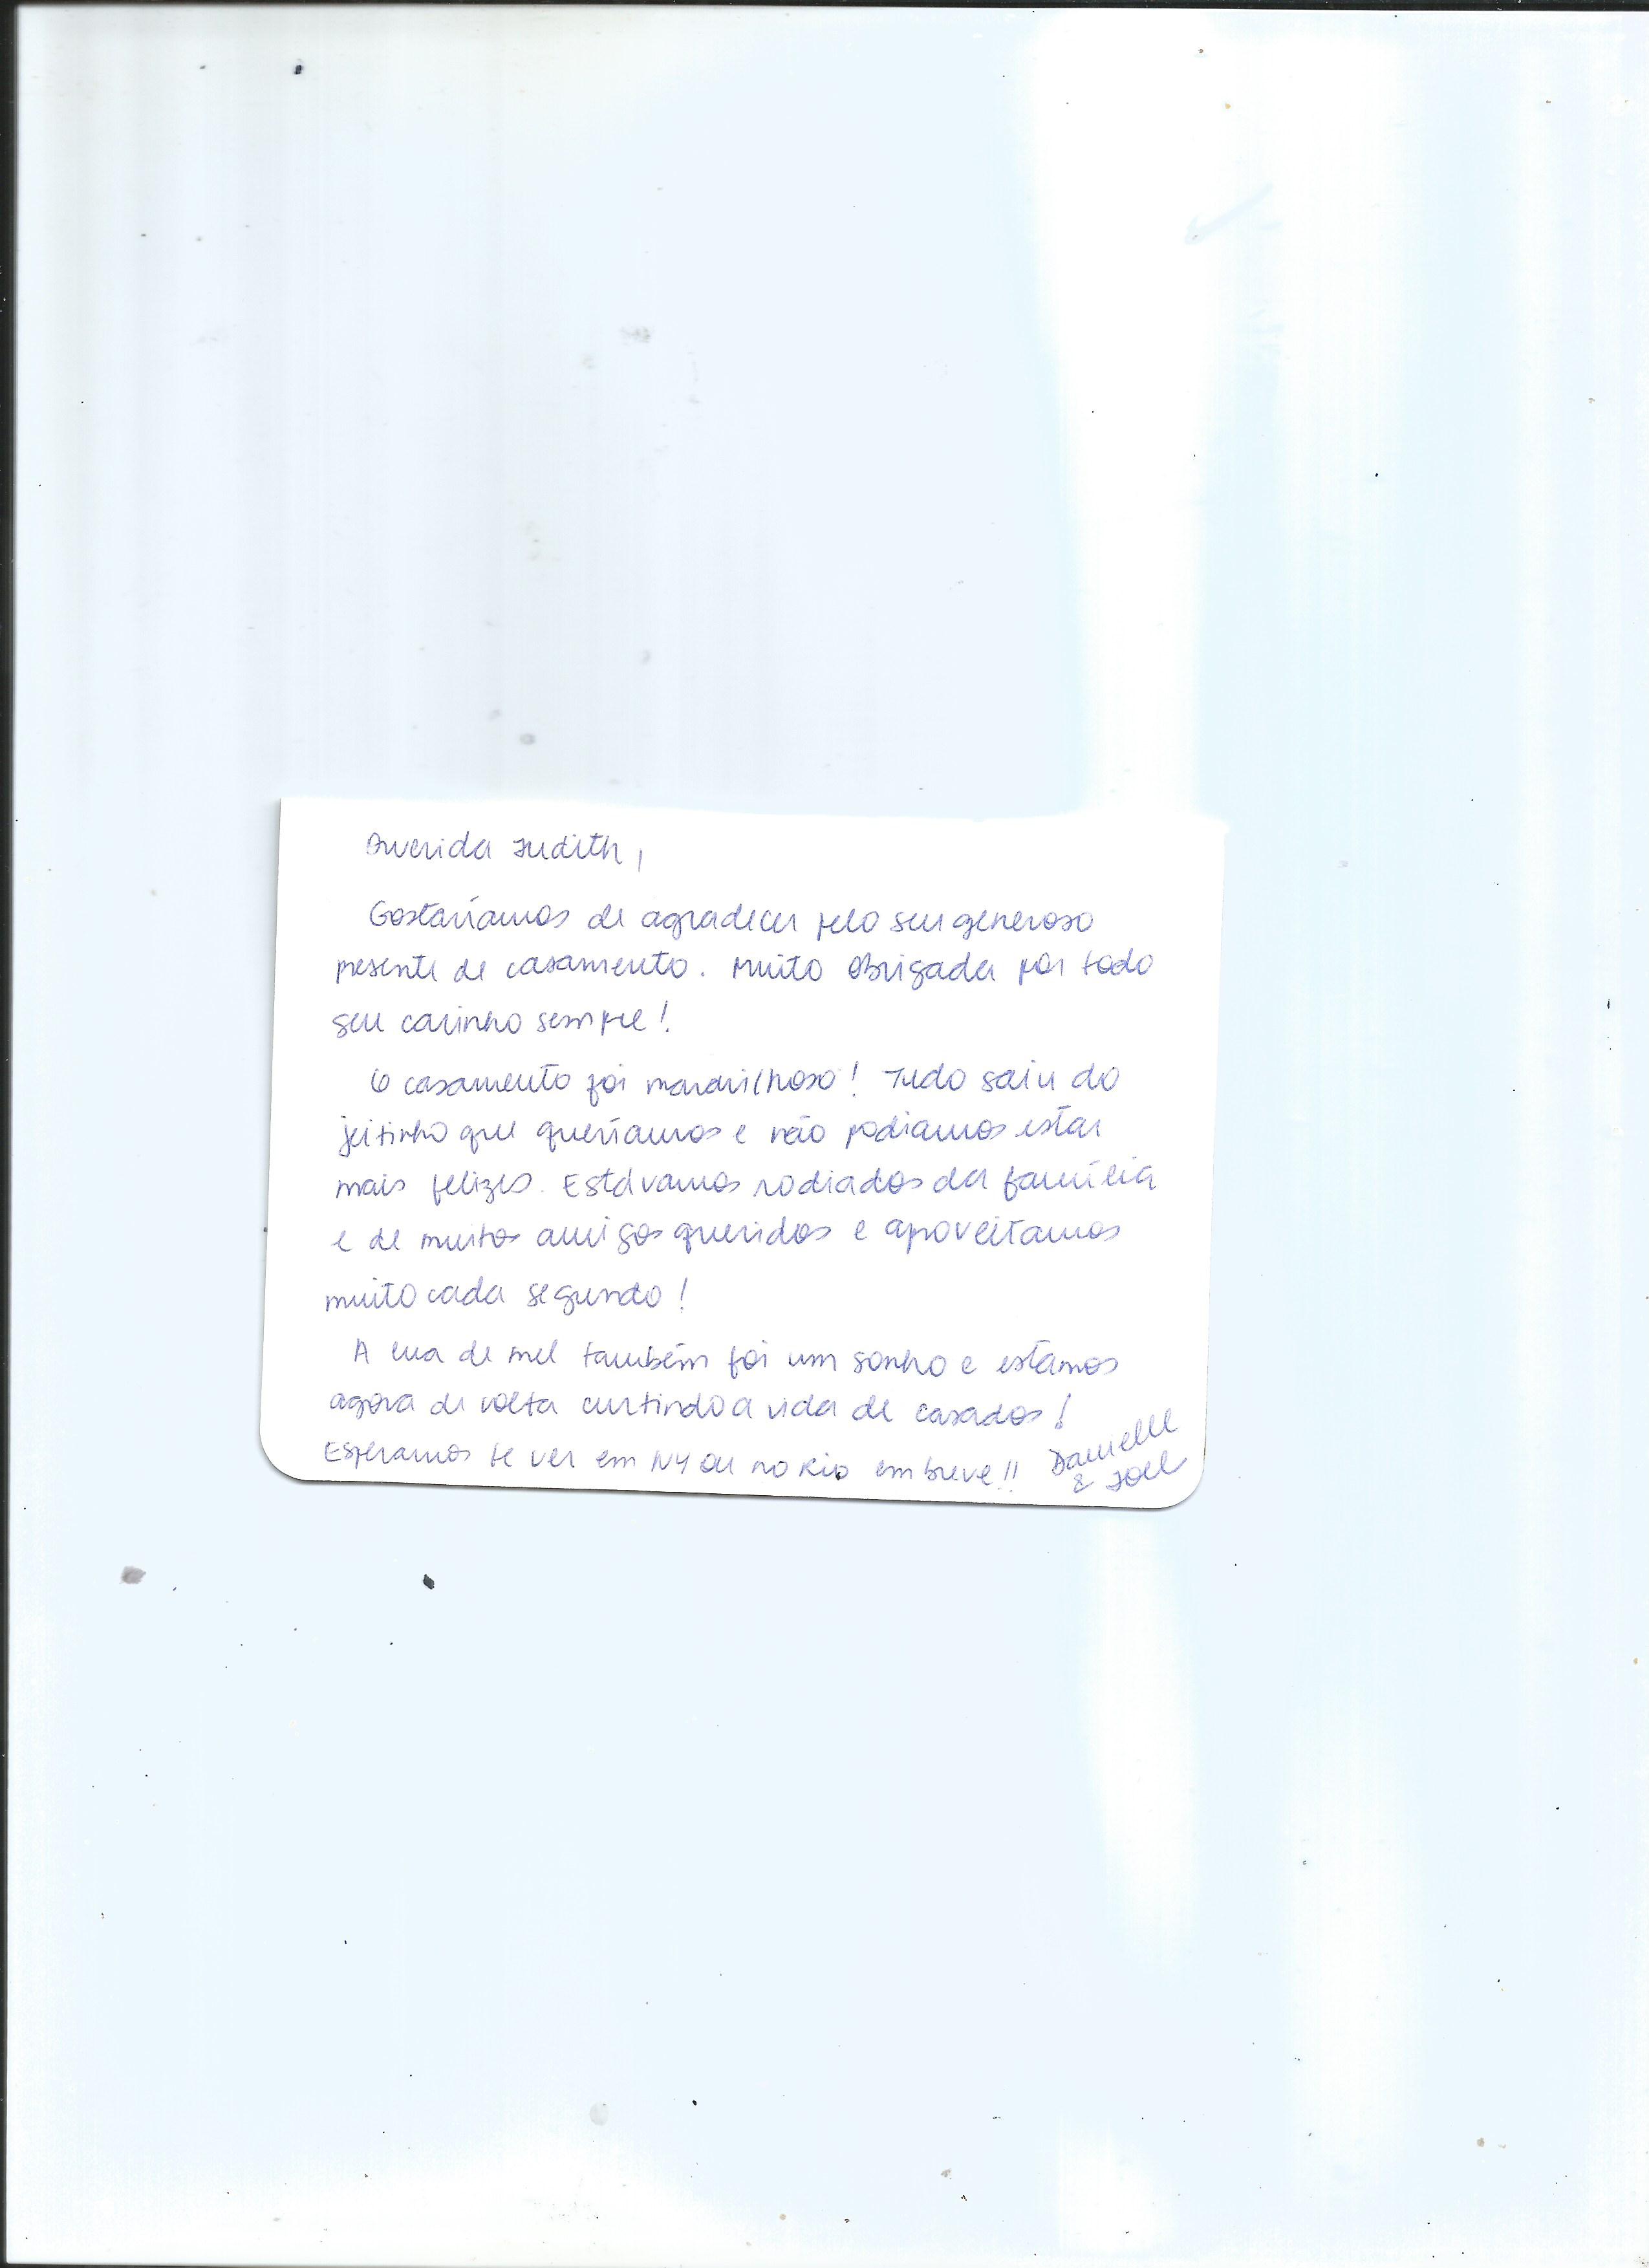 Querida Judith,
Gostaríamos de agradecer pelo seu generoso
presente de casamento. Muito obrigada por todo
seu carinho sempre!
O casamento foi maravilhoso! Tudo saiu do
jeitinho que queríamos e não podiamos estar
mais felizes. Estávamos rodiados da família
e de muitos amigos queridos e aproveitamos
muito cada segundo!
A lua de mel também foi um sonho e estamos
agora de volta curtindo a vida de casados!
Esperamos te ver em NY ou no Rio em breve!!
Danielle
& Joel